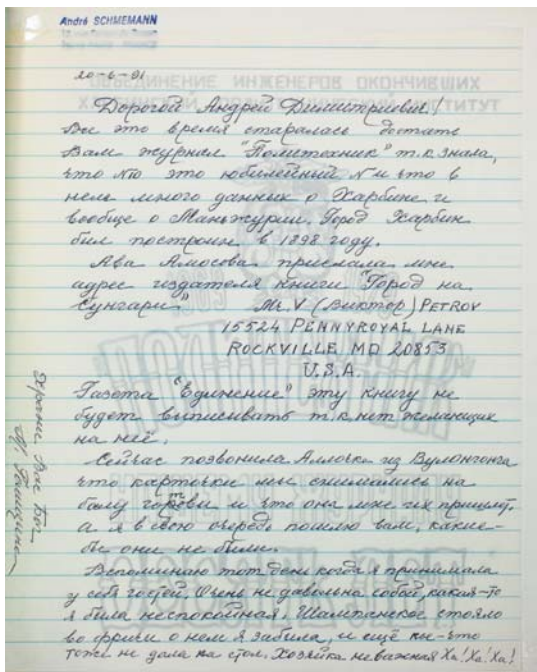 André SCHMEMANN
20-6-91
ОБЪЕДИНЕНИЕ ИНЖЕНЕРОВ ОКОНЧИВШИХ
Дорогой Андрей Димитриевич!
Все это время старалась достать
Вам журнал "Политехник" т.к. знала,
что №10 это юбилейный № и что в
нем много данных о Харбине и
вообще о Маньчжурии. Город Харбин
был построен в 1898 году.
Ава Амосова прислала мне
адрес издателя книги "Город на
Сунгари" Mr. V (Виктор) PETROV
15524 PENNYROYAL LANE
ROCKVILLE MD 20853
U.S.A.
Газета "Единение" эту книгу не
будет выписывать т.к. нет желающих
на неё.
Сейчас позвонила Аллочка из Вулонгонга
что карточки мы снимались на
балу и что она мне их пришлёт.
А я в свою очередь пошлю вам, какие-
бы они не были.
Вспоминаю тот день когда я принимала
у себя гостей. Очень не давольна собой, какая-то
я была неспокойная. Шампанское стояло
во фриги о нем я забыла, и ещё кое-что
тоже не дала на стол. Хозяйка не важная Ха! Ха! Ха!
Храни Вас Бог